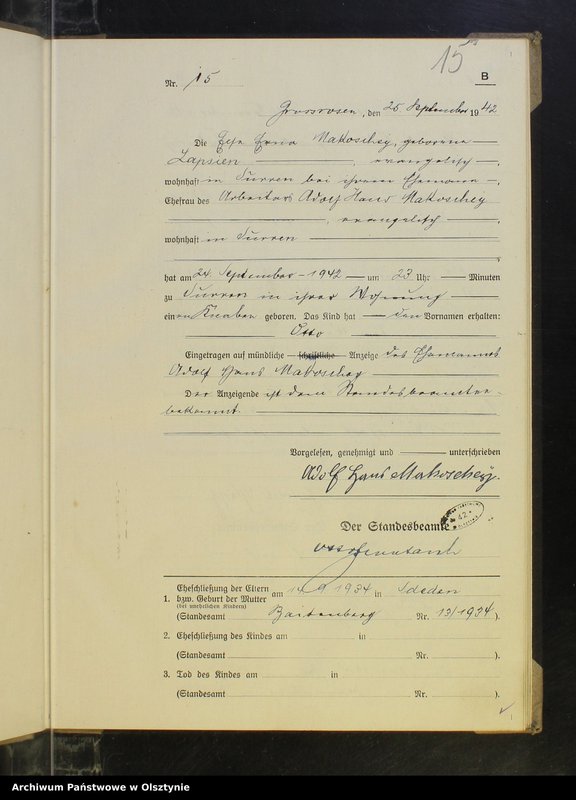 15
B
Nr. 15
Grossrosen, den 25 September 1942
Die Ehefrau Erna Makoschey, geborene
Lapsien, evangelisch,
wohnhaft in Surren bei ihrem Ehemann,
Ehefrau des Arbeiters Adolf Hans Makoschey
, evangelisch,
wohnhaft in Surren
hat am 24. September 1942 um 23 Uhr Minuten
zu Surren in ihrer Wohnung
einen Knaben geboren. Das Kind hat den Vornamen erhalten:
Otto
Eingetragen auf mündliche schriftliche Anzeige des Ehemannes
Adolf Hans Makoschey
Der Anzeigende ist dem Standesbeamten
bekannt.
Vorgelesen, genehmigt und unterschrieben
Adolf Hans Makoschey.
Der Standesbeamte
42
1. Eheschließung der Eltern am 14.9.1934 in Sdeden
bzw. Geburt der Mutter
(bei unehelichen Kindern)
(Standesamt Baitenberg Nr. 13/1934).
2. Eheschließung des Kindes am in
(Standesamt Nr. ).
3. Tod des Kindes am in
(Standesamt Nr. ).
Archiwum Państwowe w Olsztynie